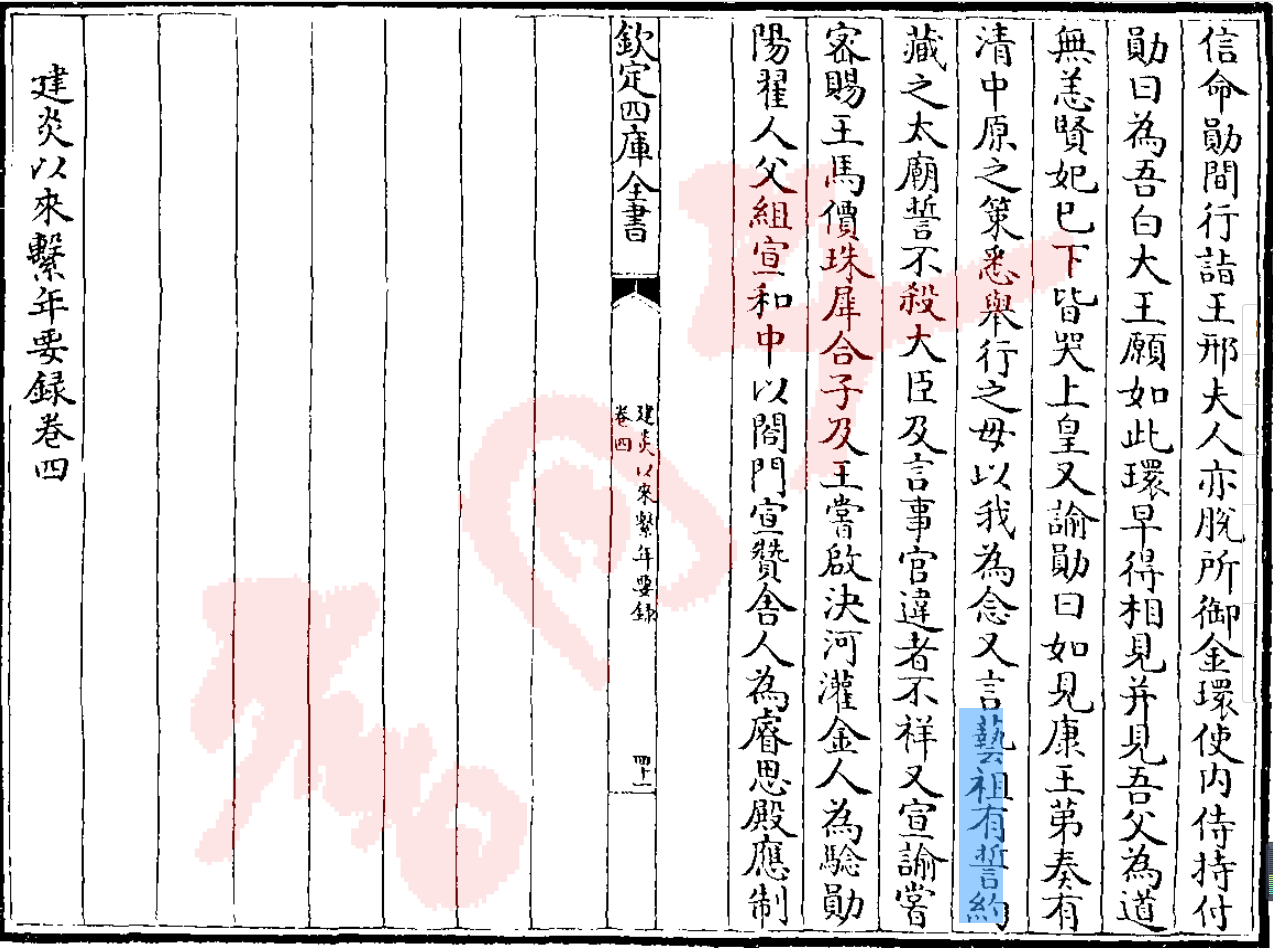 信命勛間行詣王邢夫人亦脫所御金環使内侍持付
勛曰為吾白大王願如此環早得相見并見吾父為道
無恙賢妃已下皆哭上皇又諭勛曰如見康王第奏有
清中原之策悉舉行之毋以我為念又言藝祖有誓約
藏之太廟誓不殺大臣及言事官違者不祥又宣諭嘗
密賜王馬價珠犀合子及王嘗啟決河灌金人為驗勛
陽翟人父組宣和中以閤門宣贊舍人為睿思殿應制
欽定四庫全書
建炎以來繫年要錄
卷四
四十一
建炎以來繫年要録卷四